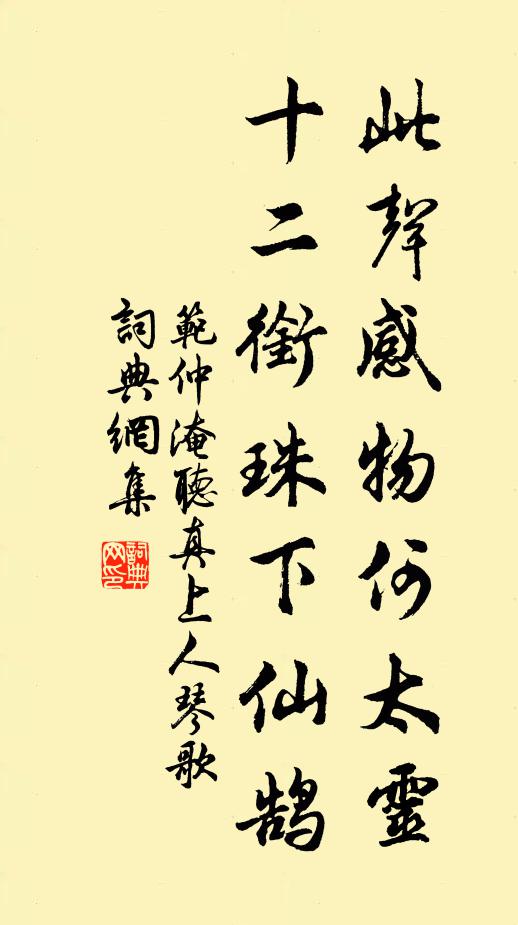 此聲感物何太靈
十二銜珠下仙鵠
範仲淹聽真上人琴歌
詞典網集
詞典网印